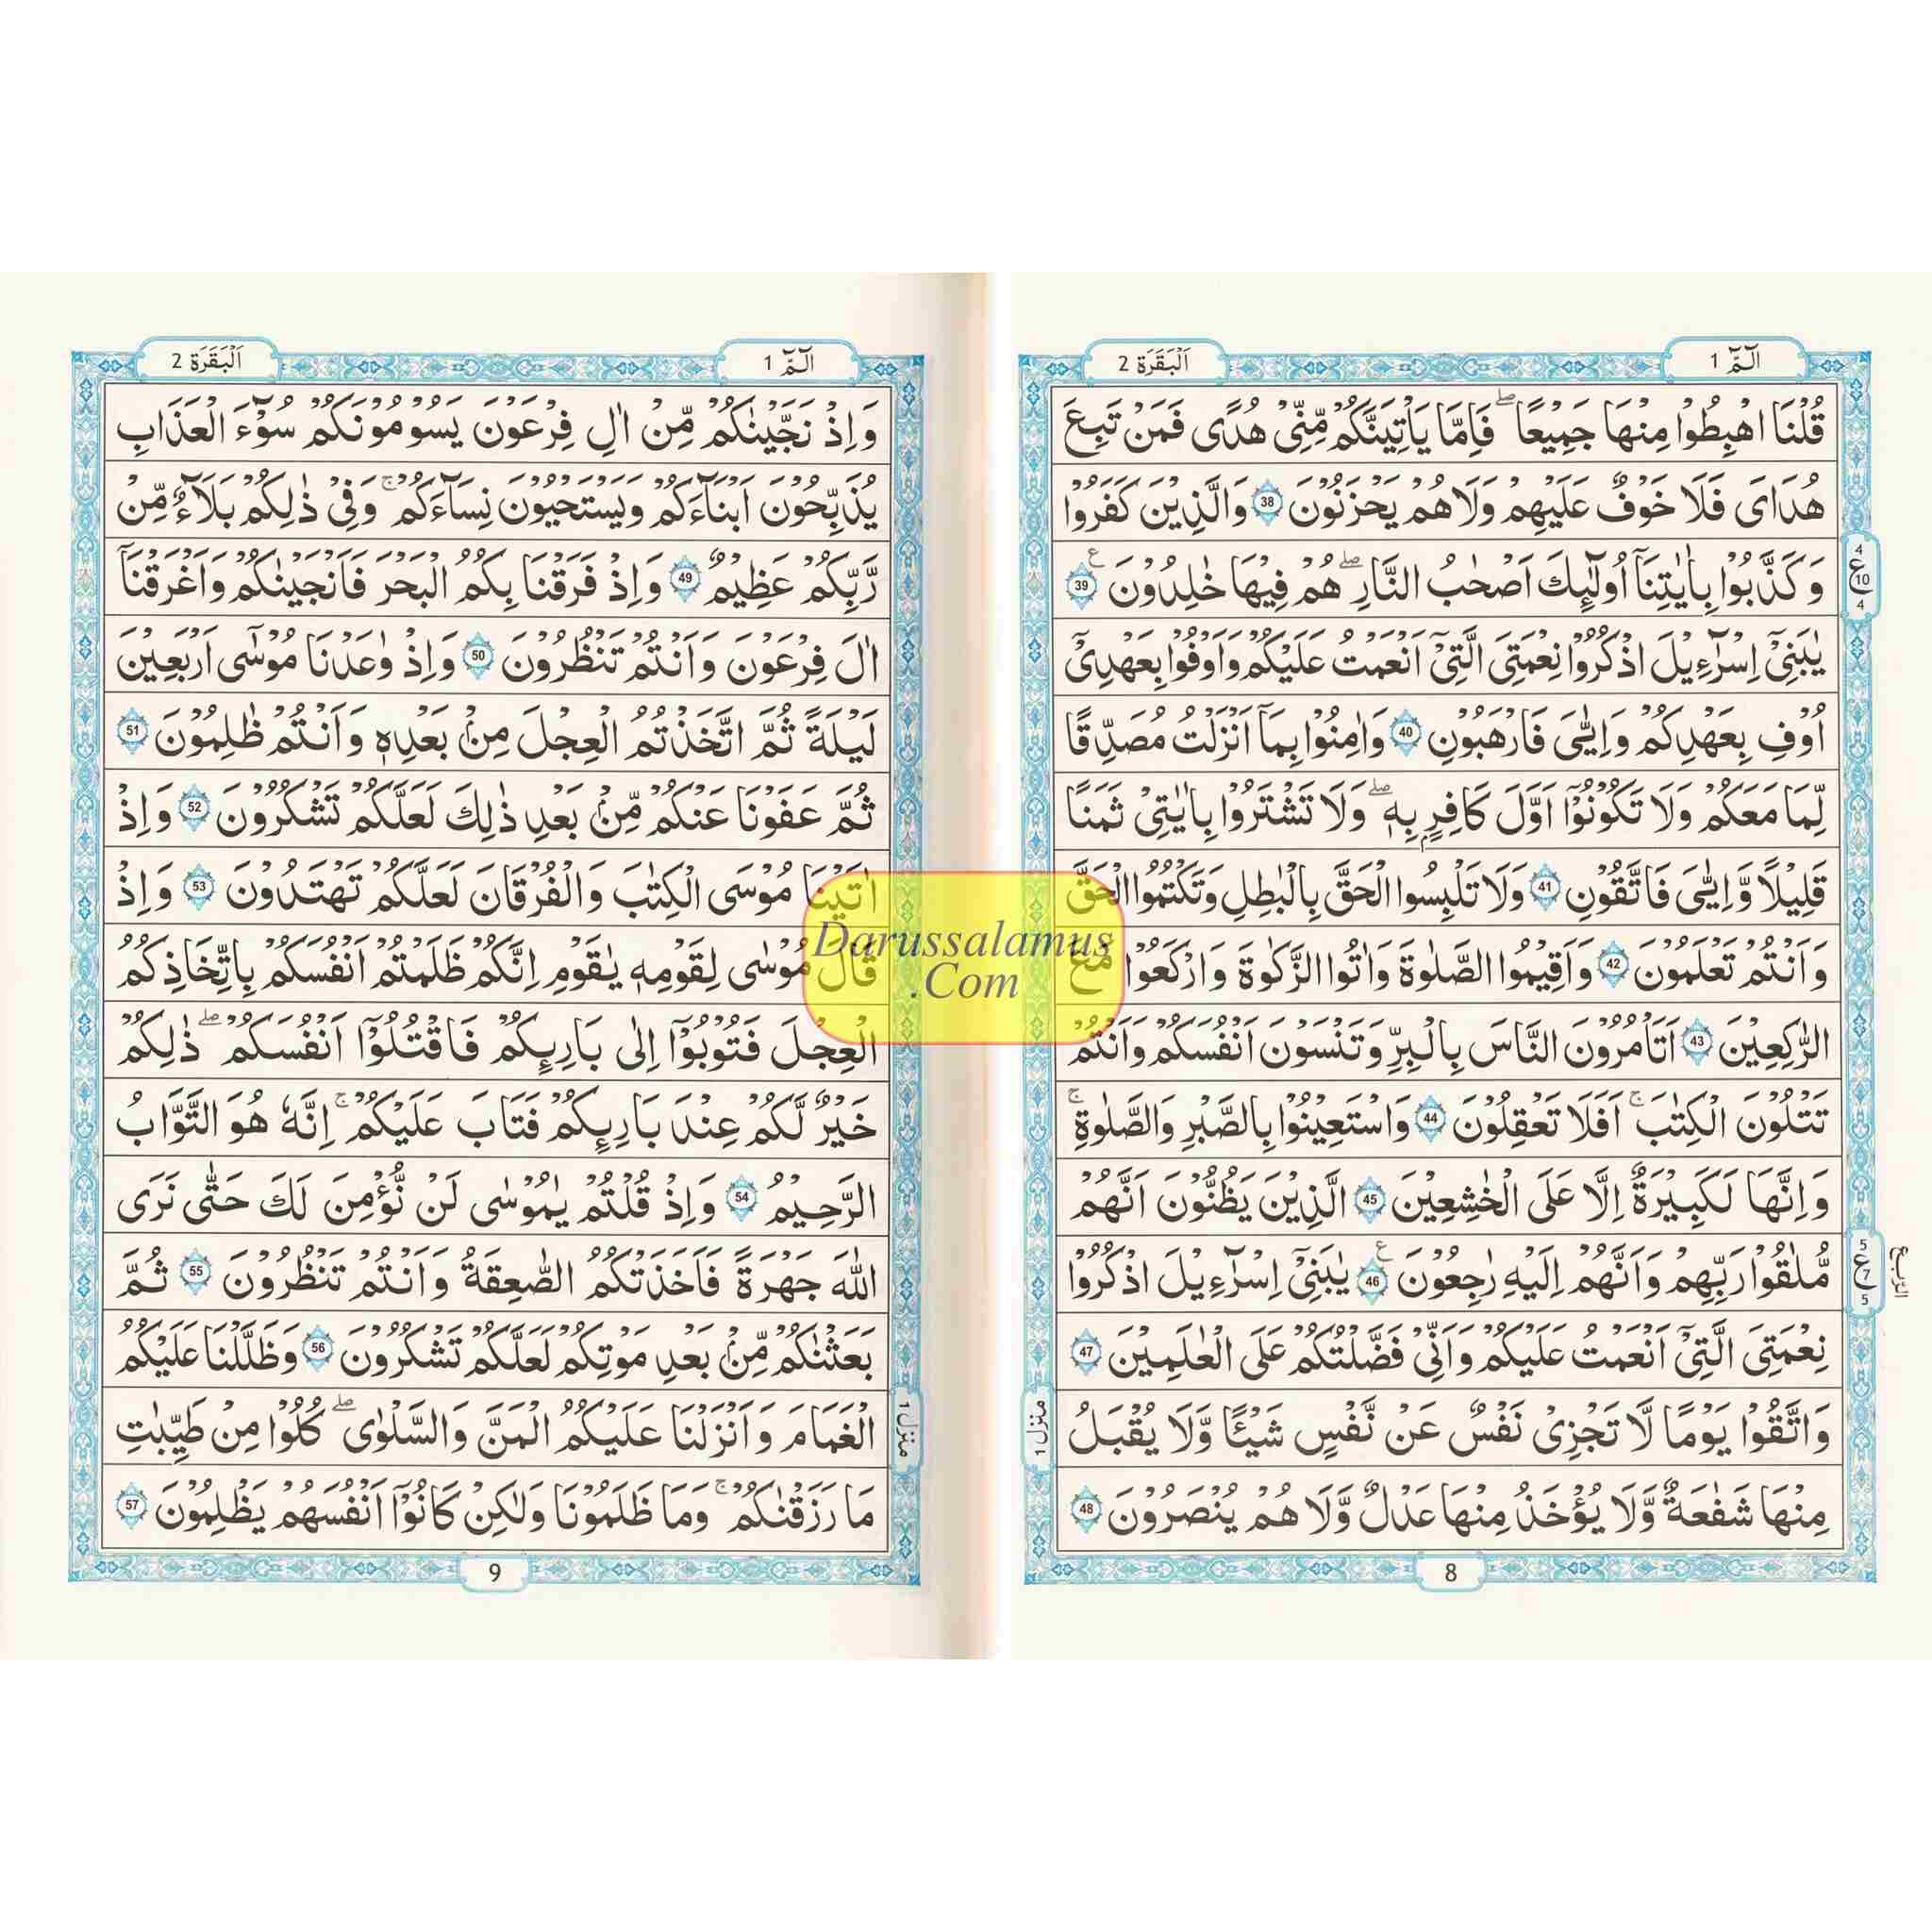 الٓمّٓ 1
اَلْبَقَرَة 2
قُلْنَا اهْبِطُوْا مِنْهَا جَمِيْعًا ۖ فَاِمَّا يَاْتِيَنَّكُمْ مِّنِّىْ هُدًى فَمَنْ تَبِعَ
هُدَاىَ فَلَا خَوْفٌ عَلَيْهِمْ وَلَا هُمْ يَحْزَنُوْنَ 38 وَالَّذِيْنَ كَفَرُوْا
وَكَذَّبُوْا بِاٰيٰتِنَآ اُولٰٓئِكَ اَصْحٰبُ النَّارِ ۖ هُمْ فِيْهَا خٰلِدُوْنَ ع 39
يٰبَنِىْٓ اِسْرَآءِيْلَ اذْكُرُوْا نِعْمَتِىَ الَّتِىْٓ اَنْعَمْتُ عَلَيْكُمْ وَاَوْفُوْا بِعَهْدِىْٓ
اُوْفِ بِعَهْدِكُمْ وَاِيَّٰىَ فَارْهَبُوْنِ 40 وَاٰمِنُوْا بِمَآ اَنْزَلْتُ مُصَدِّقًا
لِّمَا مَعَكُمْ وَلَا تَكُوْنُوْٓا اَوَّلَ كَافِرٍۭ بِهٖ ۖ وَلَا تَشْتَرُوْا بِاٰيٰتِىْ ثَمَنًا
قَلِيْلًا وَّاِيَّٰىَ فَاتَّقُوْنِ 41 وَلَا تَلْبِسُوا الْحَقَّ بِالْبٰطِلِ وَتَكْتُمُوا الْحَقَّ
وَاَنْتُمْ تَعْلَمُوْنَ 42 وَاَقِيْمُوا الصَّلٰوةَ وَاٰتُوا الزَّكٰوةَ وَارْكَعُوْا مَعَ
الرّٰكِعِيْنَ 43 اَتَاْمُرُوْنَ النَّاسَ بِالْبِرِّ وَتَنْسَوْنَ اَنْفُسَكُمْ وَاَنْتُمْ
تَتْلُوْنَ الْكِتٰبَ ۚ اَفَلَا تَعْقِلُوْنَ 44 وَاسْتَعِيْنُوْا بِالصَّبْرِ وَالصَّلٰوةِ ۚ
وَاِنَّهَا لَكَبِيْرَةٌ اِلَّا عَلَى الْخٰشِعِيْنَ 45 الَّذِيْنَ يَظُنُّوْنَ اَنَّهُمْ
مُّلٰقُوْا رَبِّهِمْ وَاَنَّهُمْ اِلَيْهِ رٰجِعُوْنَ ع 46 يٰبَنِىْٓ اِسْرَآءِيْلَ اذْكُرُوْا
نِعْمَتِىَ الَّتِىْٓ اَنْعَمْتُ عَلَيْكُمْ وَاَنِّىْ فَضَّلْتُكُمْ عَلَى الْعٰلَمِيْنَ 47
وَاتَّقُوْا يَوْمًا لَّا تَجْزِىْ نَفْسٌ عَنْ نَّفْسٍ شَيْـًٔا وَّلَا يُقْبَلُ
مِنْهَا شَفٰعَةٌ وَّلَا يُؤْخَذُ مِنْهَا عَدْلٌ وَّلَا هُمْ يُنْصَرُوْنَ 48
4
ع 10
4
5
ع 7
5
الرّبع
منزل ١
8
الٓمّٓ 1
اَلْبَقَرَة 2
وَاِذْ نَجَّيْنٰكُمْ مِّنْ اٰلِ فِرْعَوْنَ يَسُوْمُوْنَكُمْ سُوْٓءَ الْعَذَابِ
يُذَبِّحُوْنَ اَبْنَآءَكُمْ وَيَسْتَحْيُوْنَ نِسَآءَكُمْ ۚ وَفِىْ ذٰلِكُمْ بَلَآءٌ مِّنْ
رَّبِّكُمْ عَظِيْمٌ 49 وَاِذْ فَرَقْنَا بِكُمُ الْبَحْرَ فَاَنْجَيْنٰكُمْ وَاَغْرَقْنَآ
اٰلَ فِرْعَوْنَ وَاَنْتُمْ تَنْظُرُوْنَ 50 وَاِذْ وٰعَدْنَا مُوْسٰٓى اَرْبَعِيْنَ
لَيْلَةً ثُمَّ اتَّخَذْتُمُ الْعِجْلَ مِنْۢ بَعْدِهٖ وَاَنْتُمْ ظٰلِمُوْنَ 51
ثُمَّ عَفَوْنَا عَنْكُمْ مِّنْۢ بَعْدِ ذٰلِكَ لَعَلَّكُمْ تَشْكُرُوْنَ 52 وَاِذْ
اٰتَيْنَا مُوْسَى الْكِتٰبَ وَالْفُرْقَانَ لَعَلَّكُمْ تَهْتَدُوْنَ 53 وَاِذْ
قَالَ مُوْسٰى لِقَوْمِهٖ يٰقَوْمِ اِنَّكُمْ ظَلَمْتُمْ اَنْفُسَكُمْ بِاتِّخَاذِكُمُ
الْعِجْلَ فَتُوْبُوْٓا اِلٰى بَارِئِكُمْ فَاقْتُلُوْٓا اَنْفُسَكُمْ ۖ ذٰلِكُمْ
خَيْرٌ لَّكُمْ عِنْدَ بَارِئِكُمْ فَتَابَ عَلَيْكُمْ ۚ اِنَّهٗ هُوَ التَّوَّابُ
الرَّحِيْمُ 54 وَاِذْ قُلْتُمْ يٰمُوْسٰى لَنْ نُّؤْمِنَ لَكَ حَتّٰى نَرَى
اللّٰهَ جَهْرَةً فَاَخَذَتْكُمُ الصّٰعِقَةُ وَاَنْتُمْ تَنْظُرُوْنَ 55 ثُمَّ
بَعَثْنٰكُمْ مِّنْۢ بَعْدِ مَوْتِكُمْ لَعَلَّكُمْ تَشْكُرُوْنَ 56 وَظَلَّلْنَا عَلَيْكُمُ
الْغَمَامَ وَاَنْزَلْنَا عَلَيْكُمُ الْمَنَّ وَالسَّلْوٰى ۖ كُلُوْا مِنْ طَيِّبٰتِ
مَا رَزَقْنٰكُمْ ۚ وَمَا ظَلَمُوْنَا وَلٰكِنْ كَانُوْٓا اَنْفُسَهُمْ يَظْلِمُوْنَ 57
منزل ١
9
Darussalamus
.Com